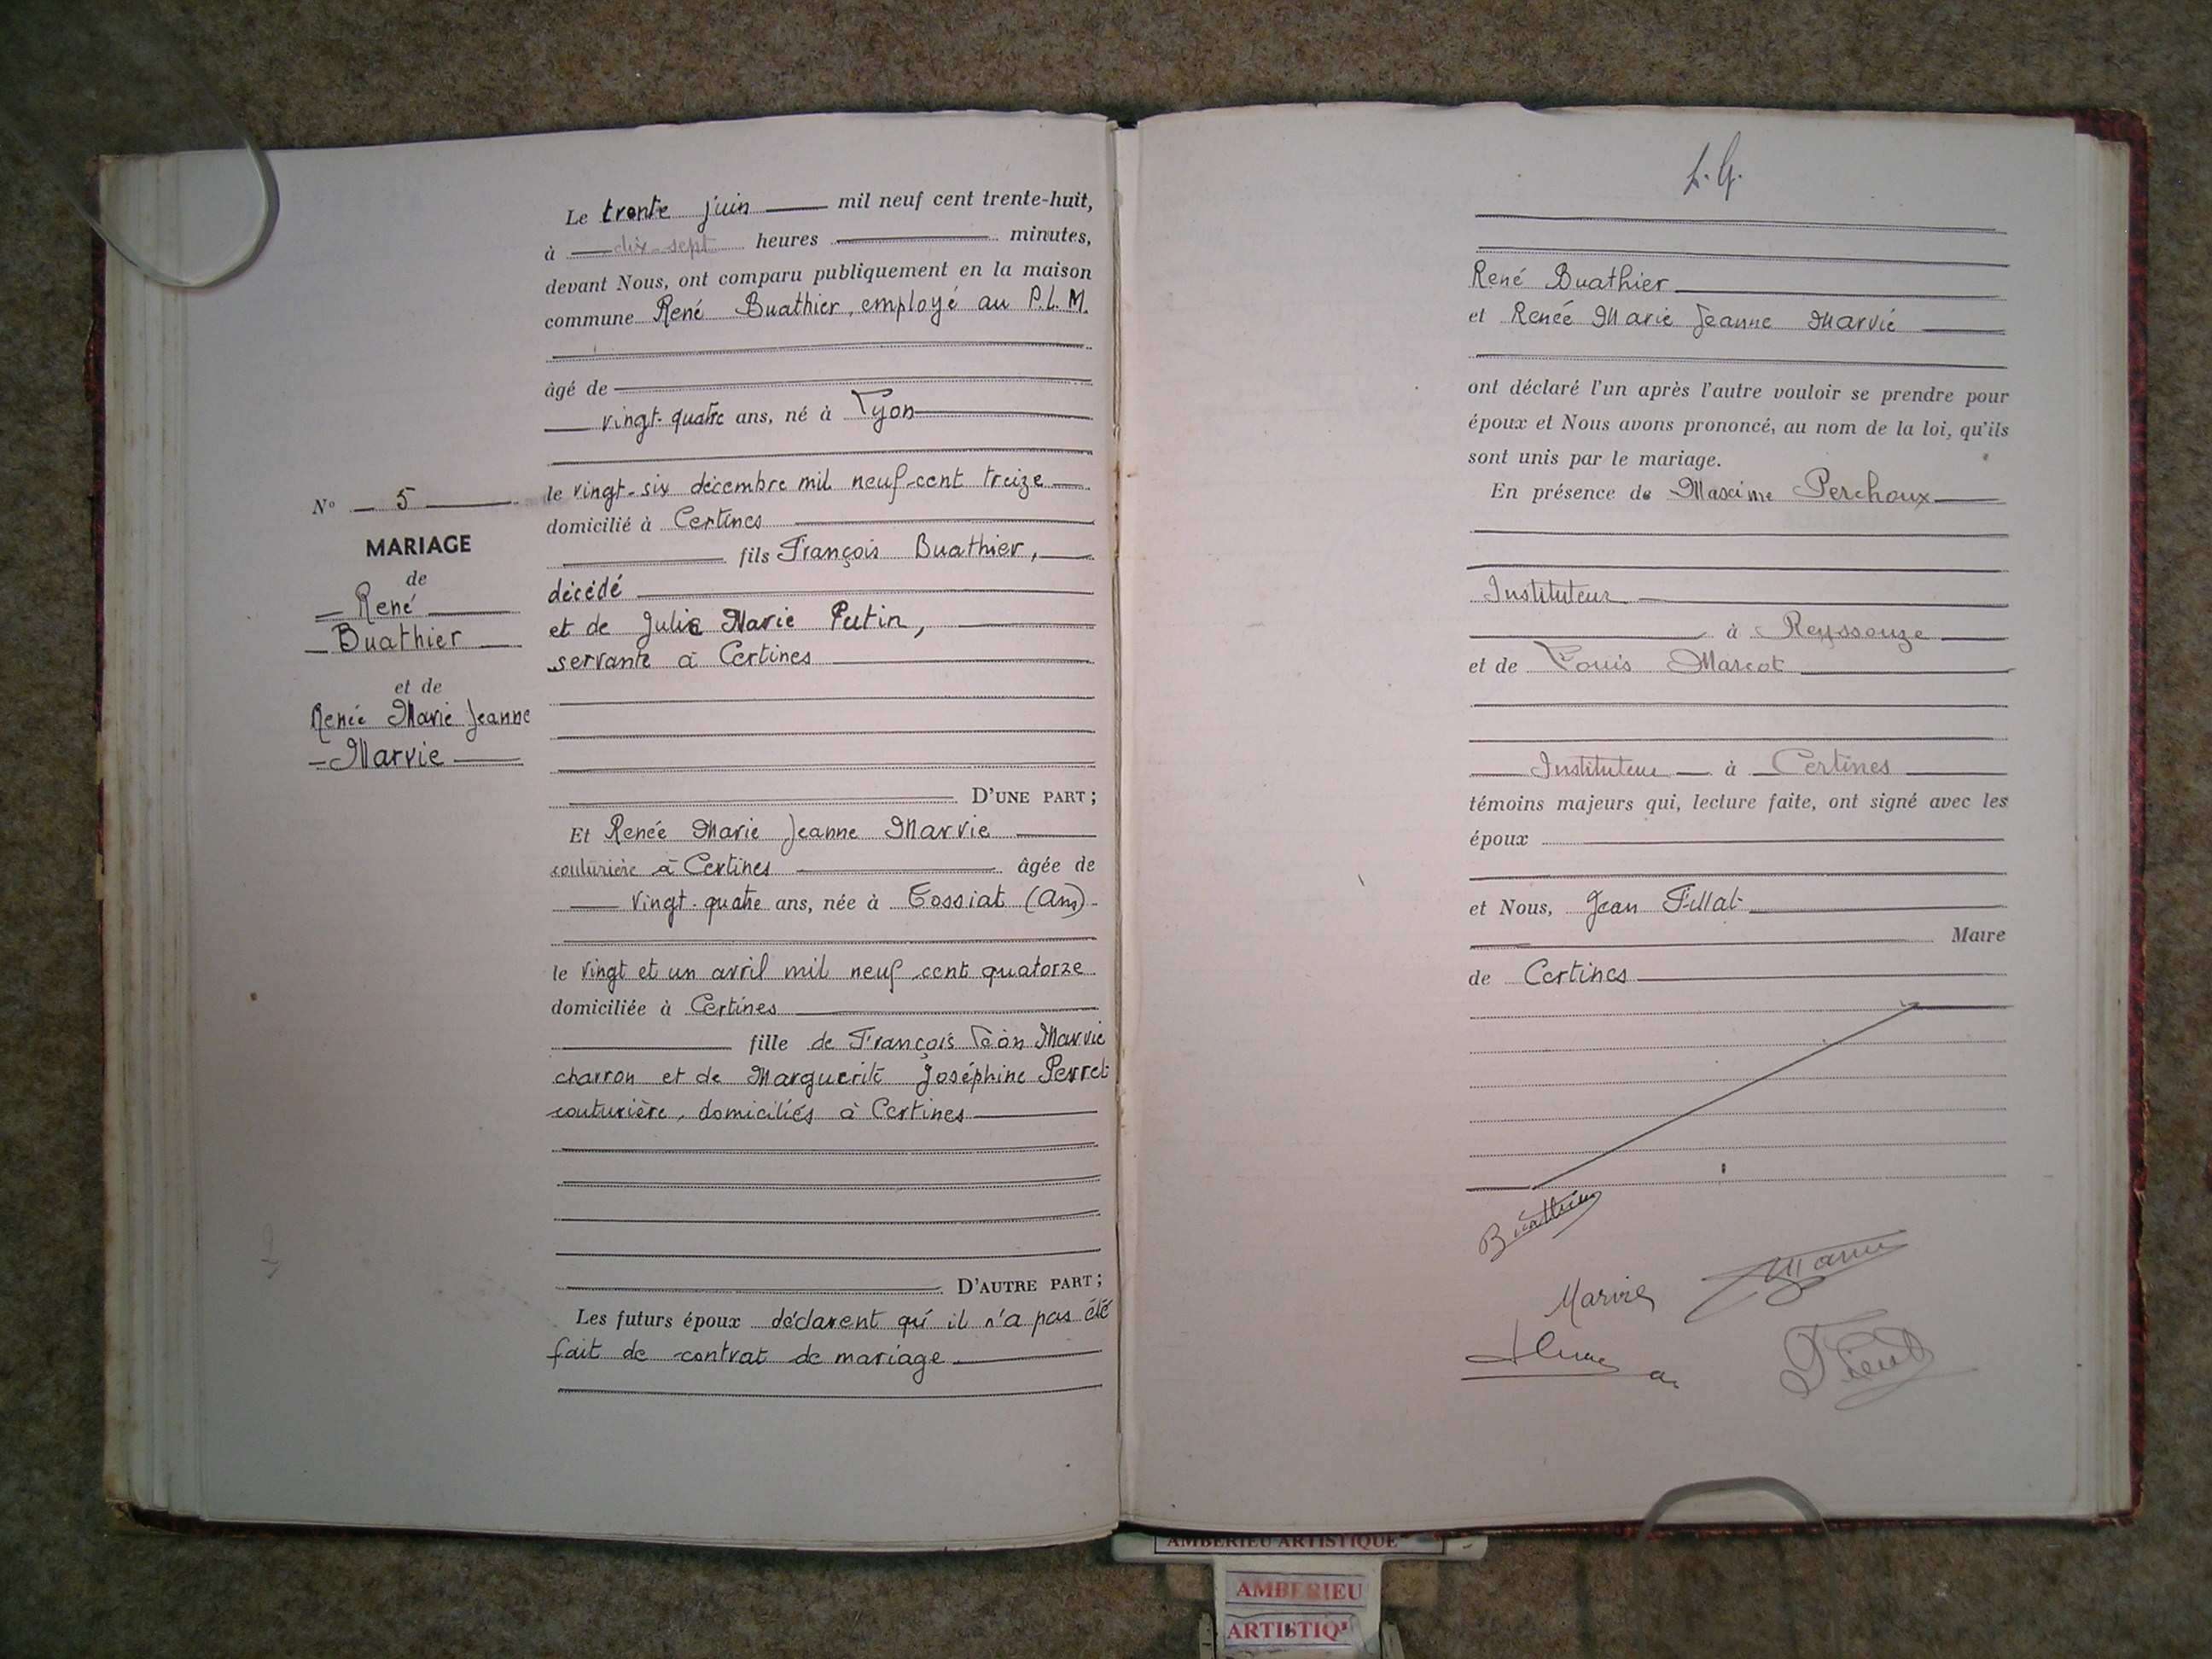 Le trente juin mil neuf cent trente-huit,
à dix-sept heures minutes,
devant Nous, ont comparu publiquement en la maison
commune René Buathier, employé au P.L.M.
âgé de
vingt-quatre ans, né à Lyon
le vingt-six décembre mil neuf-cent treize
domicilié à Certines
fils François Buathier,
décédé
et de Julie Marie Putin,
servante à Certines
D'UNE PART ;
Et Renée Marie Jeanne Marvie
couturière à Certines âgée de
vingt-quatre ans, née à Tossiat (Ain)
le vingt et un avril mil neuf cent quatorze
domiciliée à Certines
fille de François Léon Marvie
charron et de Marguerite Joséphine Perret
couturière, domiciliés à Certines
D'AUTRE PART ;
Les futurs époux déclarent qu'il n'a pas été
fait de contrat de mariage
N° 5
MARIAGE
de
René
Buathier
et de
Renée Marie Jeanne
Marvie
L.G.
René Buathier
et Renée Marie Jeanne Marvie
ont déclaré l'un après l'autre vouloir se prendre pour
époux et Nous avons prononcé, au nom de la loi, qu'ils
sont unis par le mariage.
En présence de Maxime Perchoux
Instituteur
à Reyssouze
et de Louis Marcot
Instituteur à Certines
témoins majeurs qui, lecture faite, ont signé avec les
époux
et Nous, Jean Fillat
Maire
de Certines
Buathier
Marvie
AMBERIEU ARTISTIQUE
AMBERIEU
ARTISTIQ